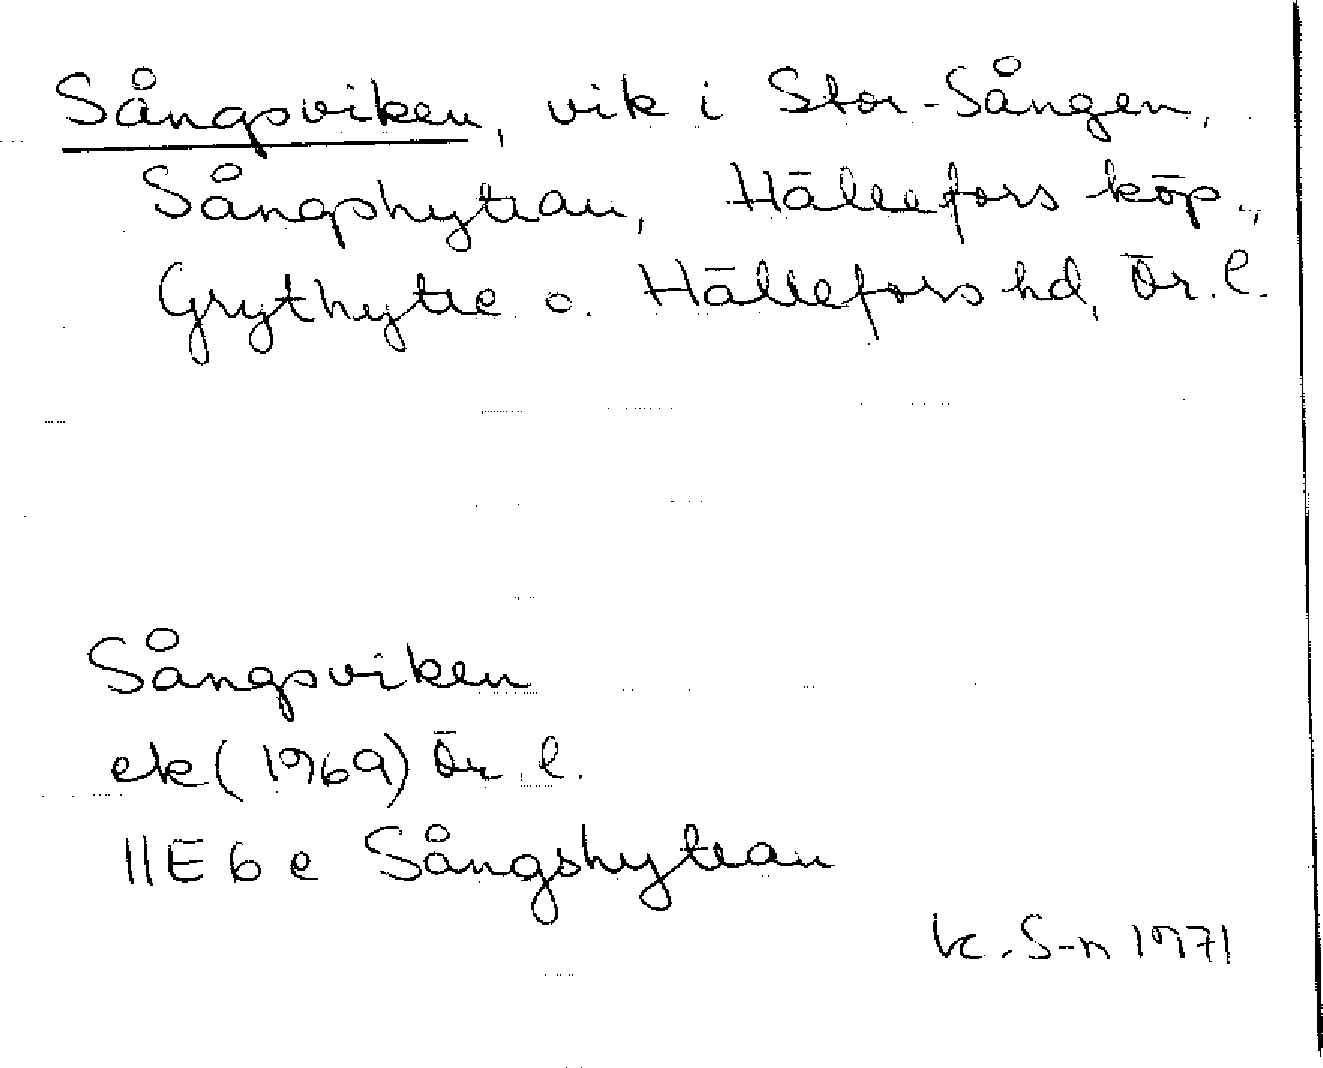 Sångsviken, vik i Stor-Sången,
Sångshyttan, Hällefors köp.,
Grythytte o. Hällefors hd, Ör. l.
Sångsviken
ek (1969) Ör. l.
11E 6 e Sångshyttan
K. S-n 1971